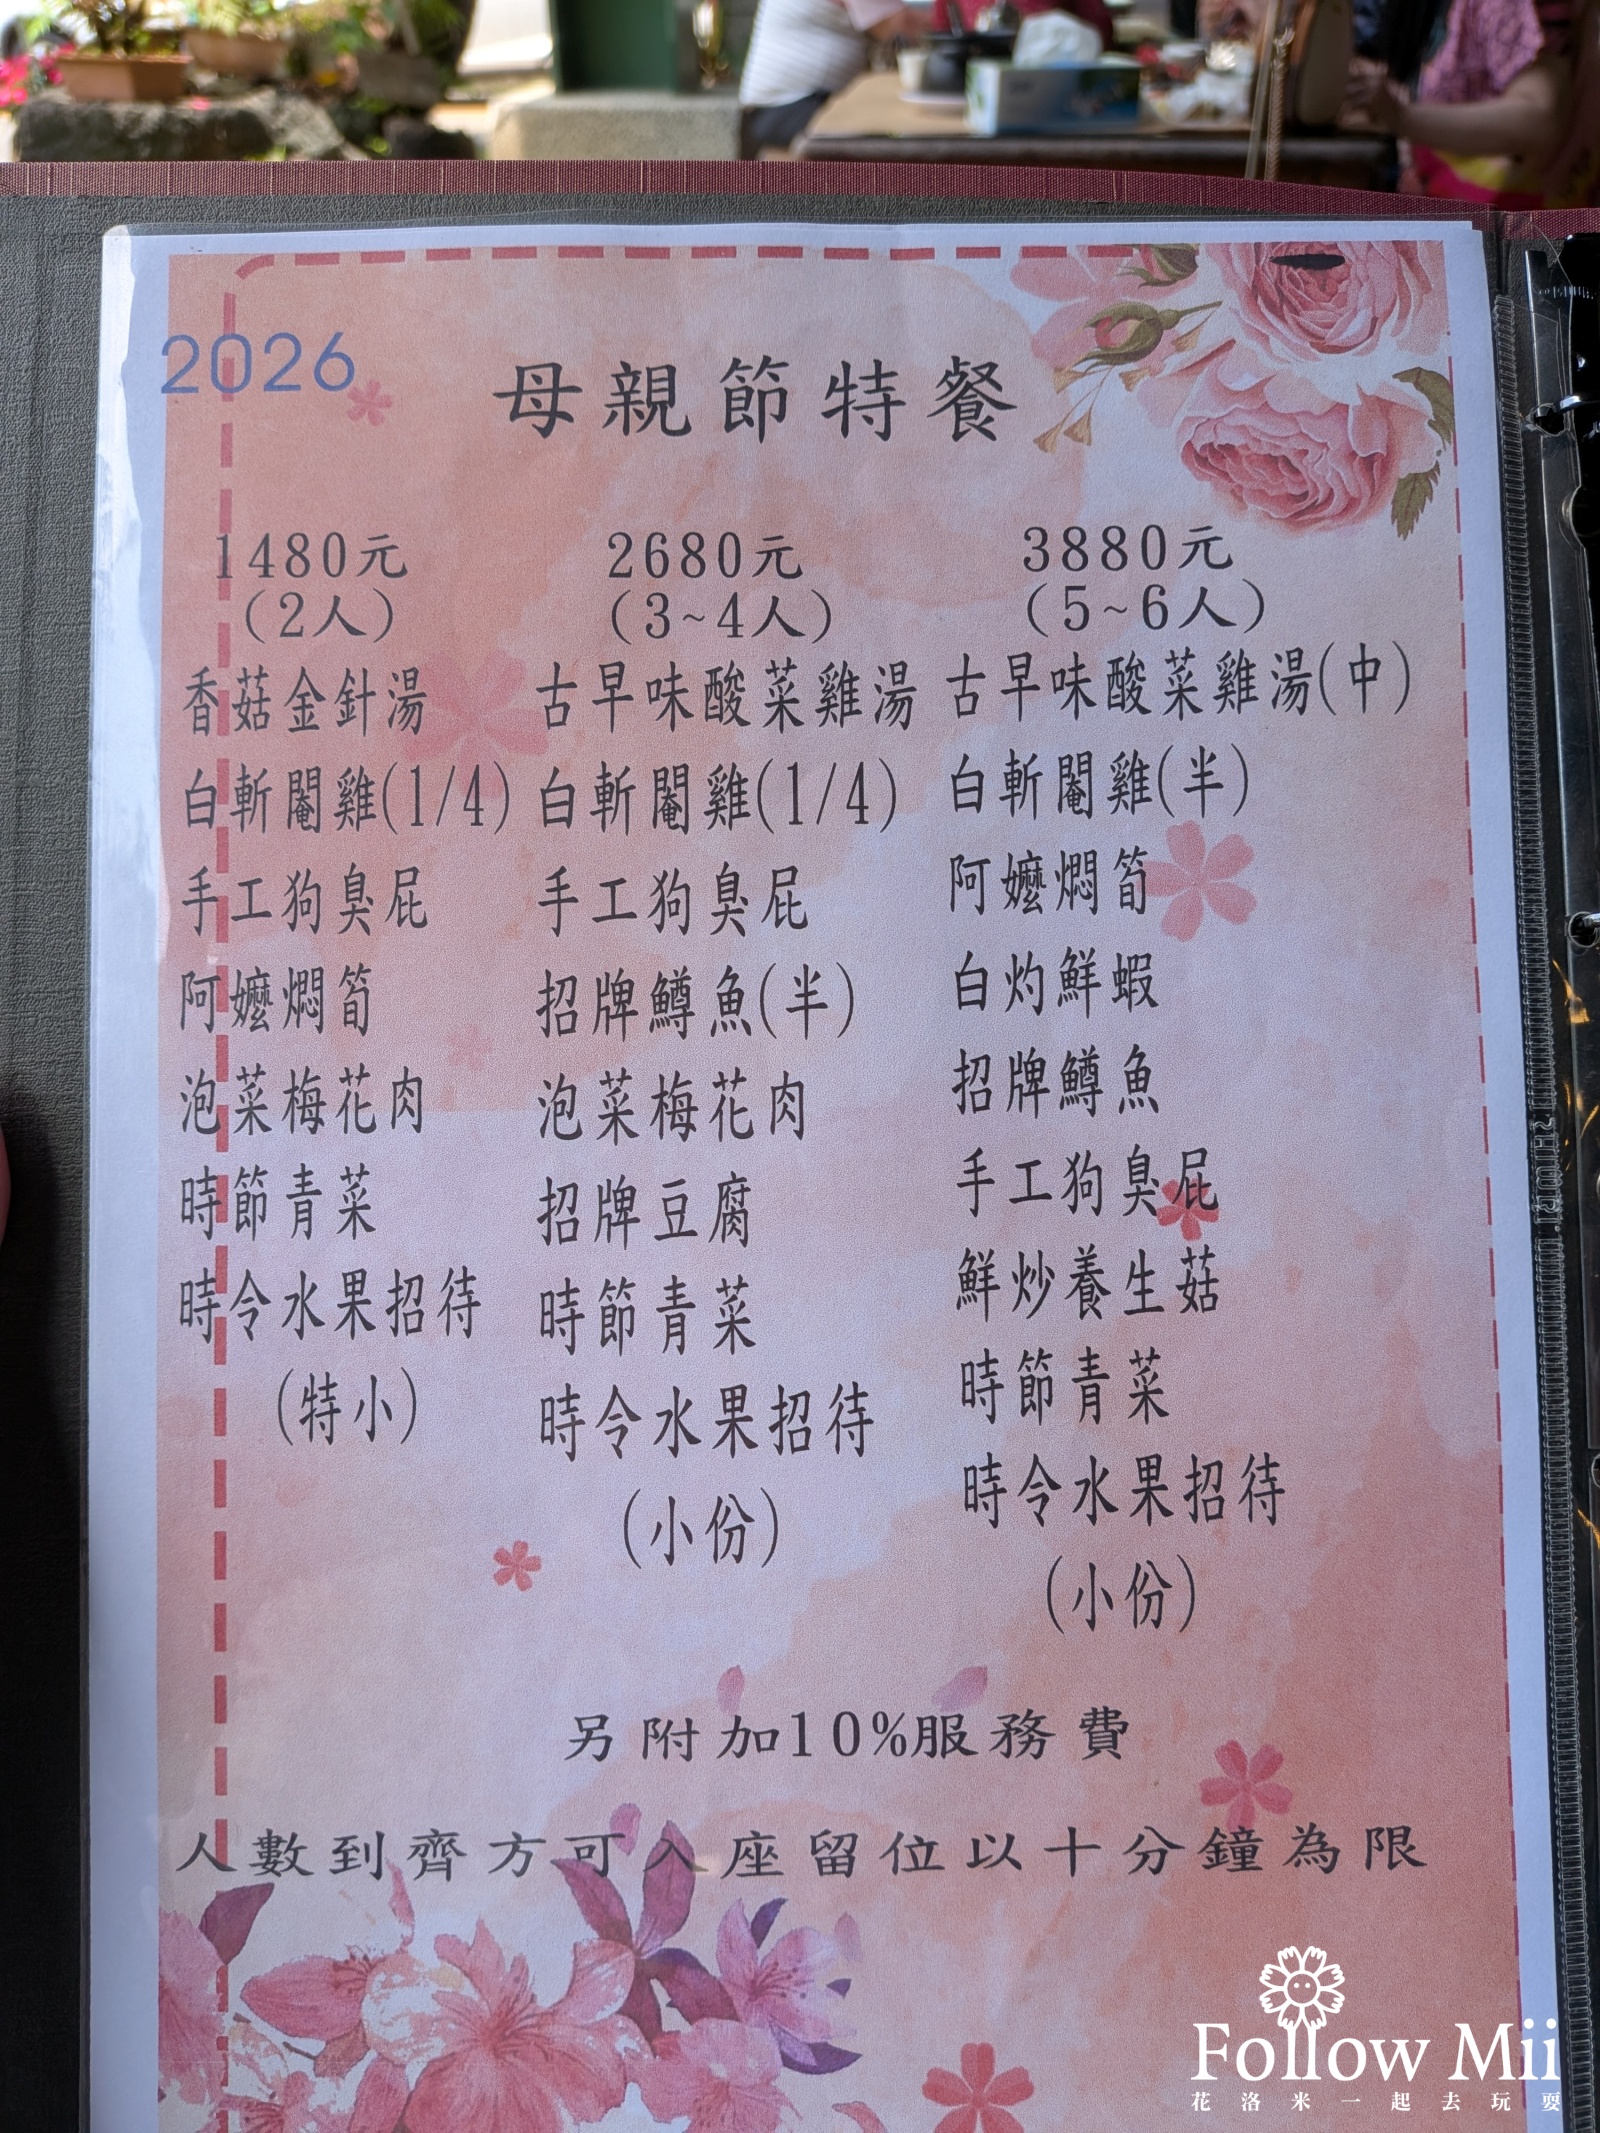 2026
母親節特餐
1480元
(2人)
香菇金針湯
白斬閹雞(1/4)
手工狗臭屁
阿嬤燜筍
泡菜梅花肉
時節青菜
時令水果招待
(特小)
2680元
(3~4人)
古早味酸菜雞湯
白斬閹雞(1/4)
手工狗臭屁
招牌鱒魚(半)
泡菜梅花肉
招牌豆腐
時節青菜
時令水果招待
(小份)
3880元
(5~6人)
古早味酸菜雞湯(中)
白斬閹雞(半)
阿嬤燜筍
白灼鮮蝦
招牌鱒魚
手工狗臭屁
鮮炒養生菇
時節青菜
時令水果招待
(小份)
另附加10%服務費
人數到齊方可入座留位以十分鐘為限
Follow Mii
花洛米一起去玩耍